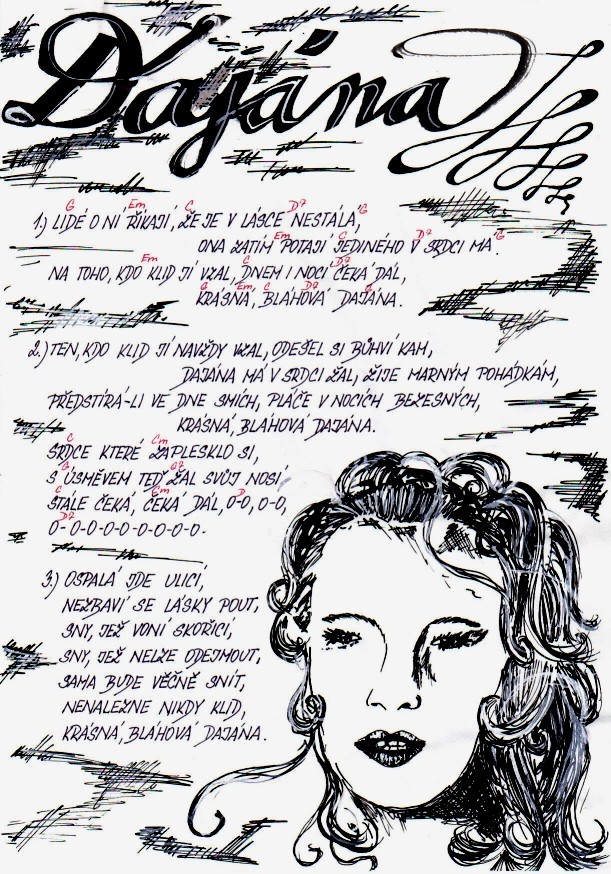 Dajána
G Em C D7 G
1.) LIDÉ O NÍ ŘÍKAJÍ, ŽE JE V LÁSCE NESTÁLÁ,
Em C D7 G
ONA ZATÍM POTAJÍ JEDINÉHO V SRDCI MÁ.
Em C D7
NA TOHO, KDO KLID JÍ VZAL, DNEM I NOCÍ ČEKÁ DÁL,
G Em C D7 G
KRÁSNÁ, BLÁHOVÁ DAJÁNA.
2.) TEN, KDO KLID JÍ NAVŽDY VZAL, ODEŠEL SI BŮHVÍ KAM,
DAJÁNA MÁ V SRDCI ŽAL, ŽIJE MARNÝM POHÁDKÁM,
PŘEDSTÍRÁ-LI VE DNE SMÍCH, PLÁČE V NOCÍCH BEZESNÝCH,
KRÁSNÁ, BLÁHOVÁ DAJÁNA.
C Cm
SRDCE KTERÉ ZAPLESKLO SI,
G
S ÚSMĚVEM TEĎ ŽAL SVŮJ NOSÍ
C Em D
STÁLE ČEKÁ, ČEKÁ DÁL, O-O, O-O,
D7
O-O-O-O-O-O-O-O-O.
3.) OSPALÁ JDE ULICÍ,
NEZBAVÍ SE LÁSKY POUT,
SNY, JEŽ VONÍ SKOŘICÍ,
SNY, JEŽ NELZE ODEJMOUT,
SAMA BUDE VĚČNĚ SNÍT,
NENALEZNE NIKDY KLID,
KRÁSNÁ, BLÁHOVÁ DAJÁNA.